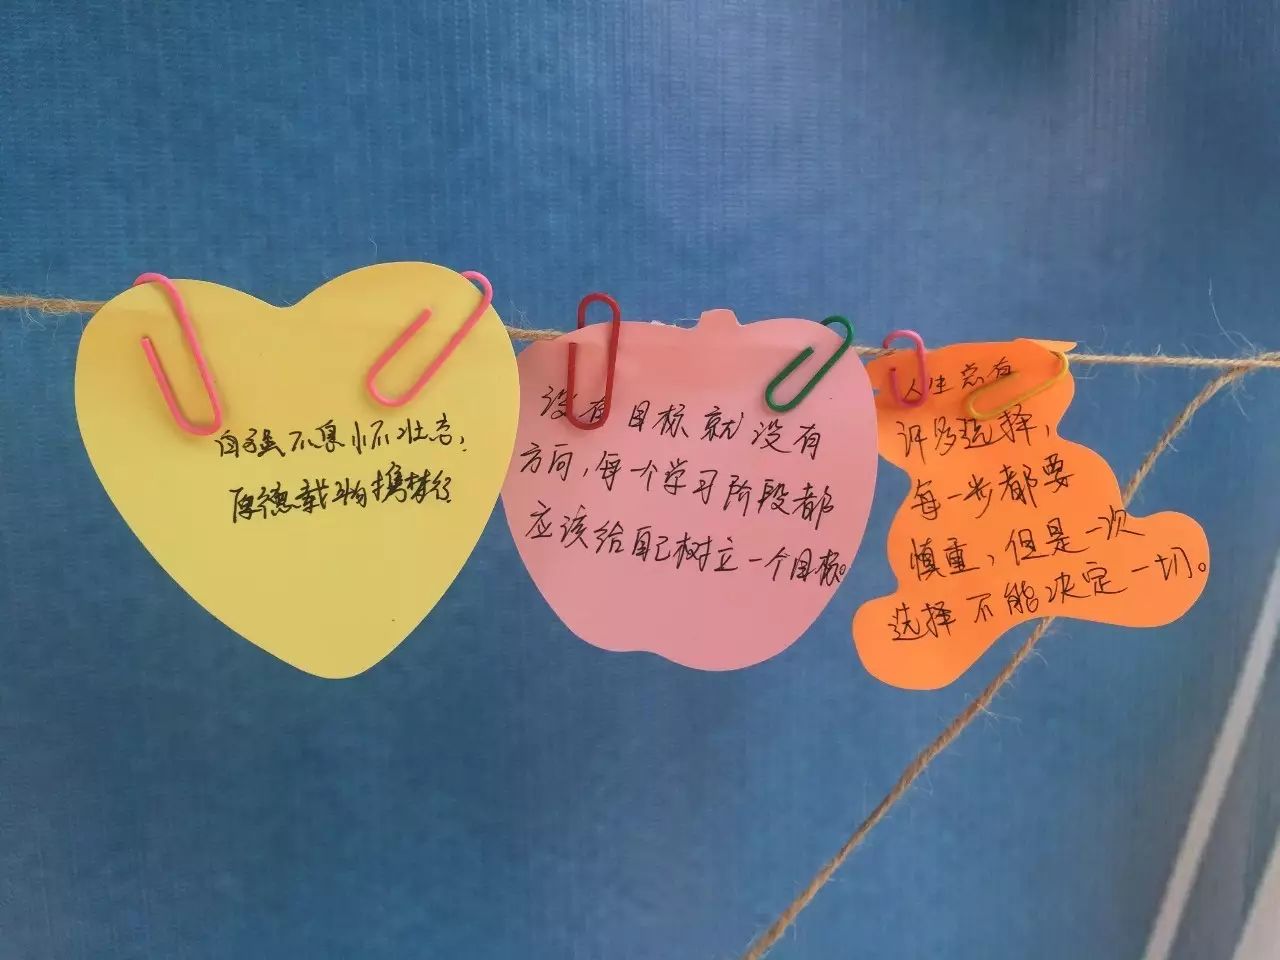 自强不息怀壮志，
厚德载物携梦行
没有目标就没有
方向，每一个学习阶段都
应该给自己树立一个目标。
人生总有
许多选择，
每一步都要
慎重，但是一次
选择不能决定一切。